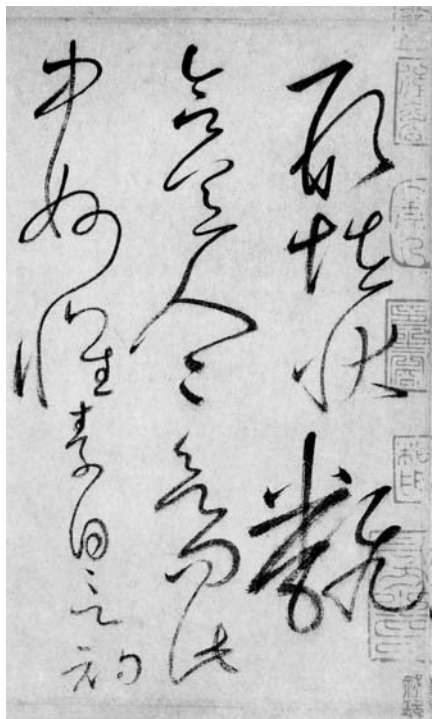 形怪狀翻
合宜人人欲問此
中妙懷素自言初